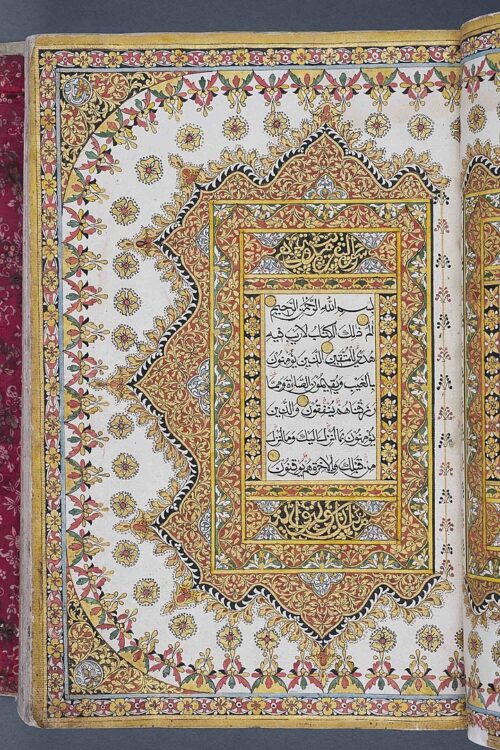 بسم الله الرحمن الرحيم
الم ذلك الكتاب لا ريب فيه
هدى للمتقين الذين يؤمنون
بالغيب ويقيمون الصلاة ومما
رزقناهم ينفقون والذين
يؤمنون بما انزل اليك وما انزل
من قبلك وبالاخرة هم يوقنون